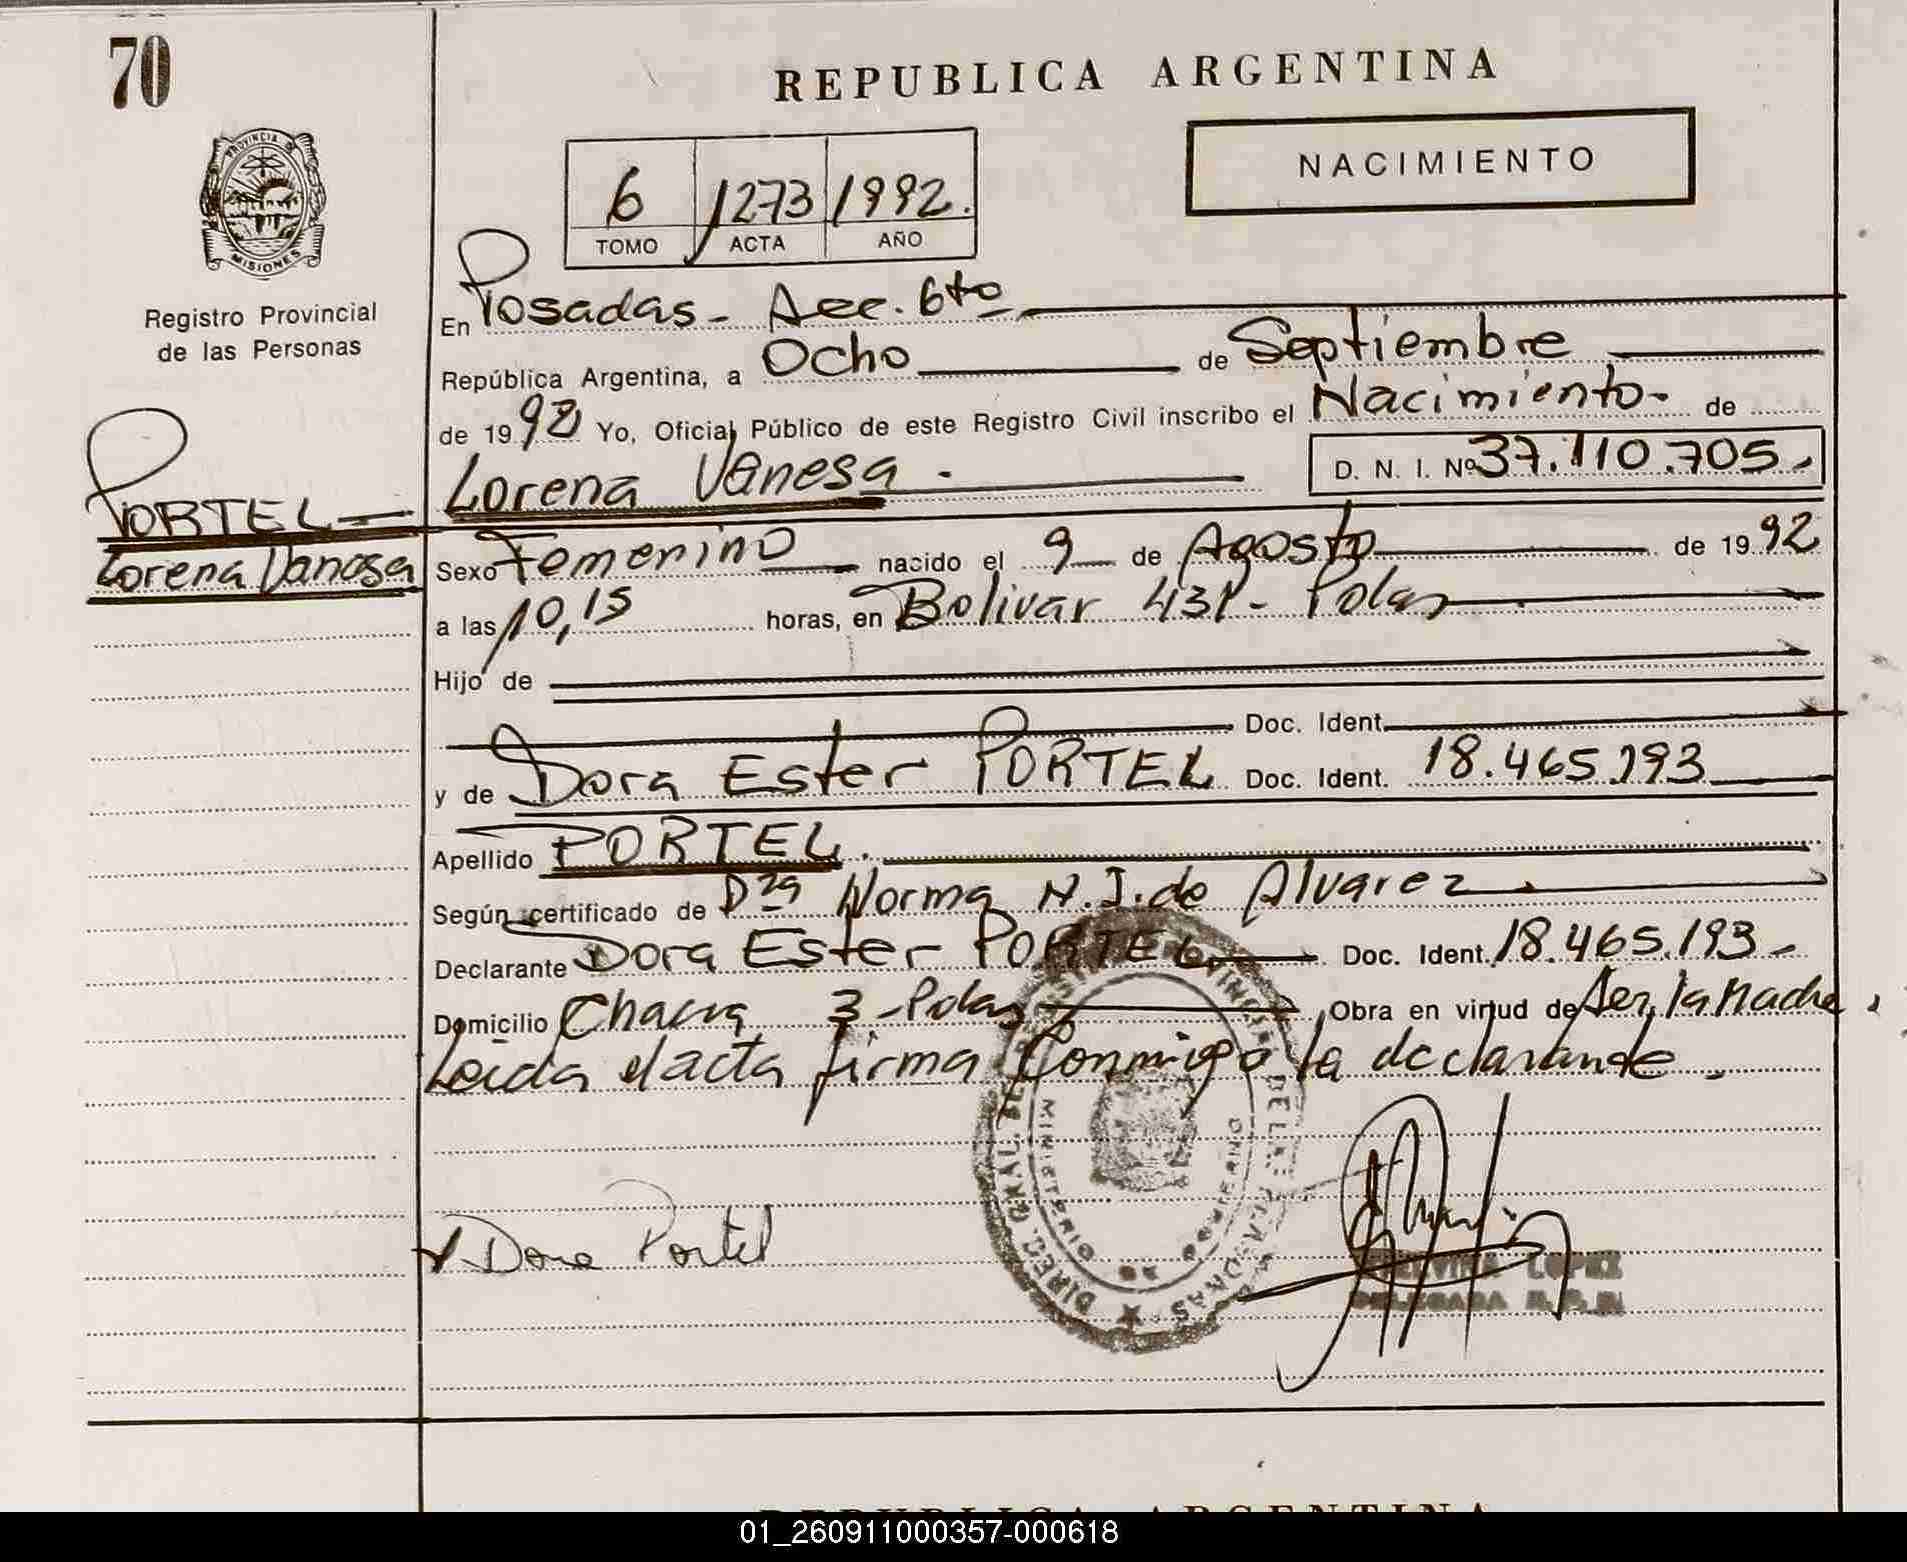 70
REPUBLICA ARGENTINA
NACIMIENTO
6 1273 1992.
TOMO ACTA AÑO
PROVINCIA DE
MISIONES
Registro Provincial
de las Personas
En Posadas - Sec. 6to
República Argentina, a Ocho de Septiembre
de 1992 Yo, Oficial Público de este Registro Civil inscribo el Nacimiento - de
Lorena Vanesa - D. N. I. Nº 37.110.705.
PORTEL
Lorena Vanesa
Sexo Femenino nacido el 9 de Agosto de 1992
a las 10,15 horas, en Bolivar 431 - Pdas
Hijo de
Doc. Ident.
y de Dora Ester PORTEL Doc. Ident. 18.465.193
Apellido PORTEL.
Según certificado de Dra Norma N. J. de Alvarez
Declarante Dora Ester PORTEL Doc. Ident. 18.465.193 -
Domicilio Chacra 3 - Pdas Obra en virtud de Ser la Madre.
Leida el acta firma Conmigo la declarante.
Dora Portel
MINISTERIO DE GOBIERNO
LOPEZ
DELEGADA R. P. P.
REPUBLICA ARGENTINA
01_260911000357-000618